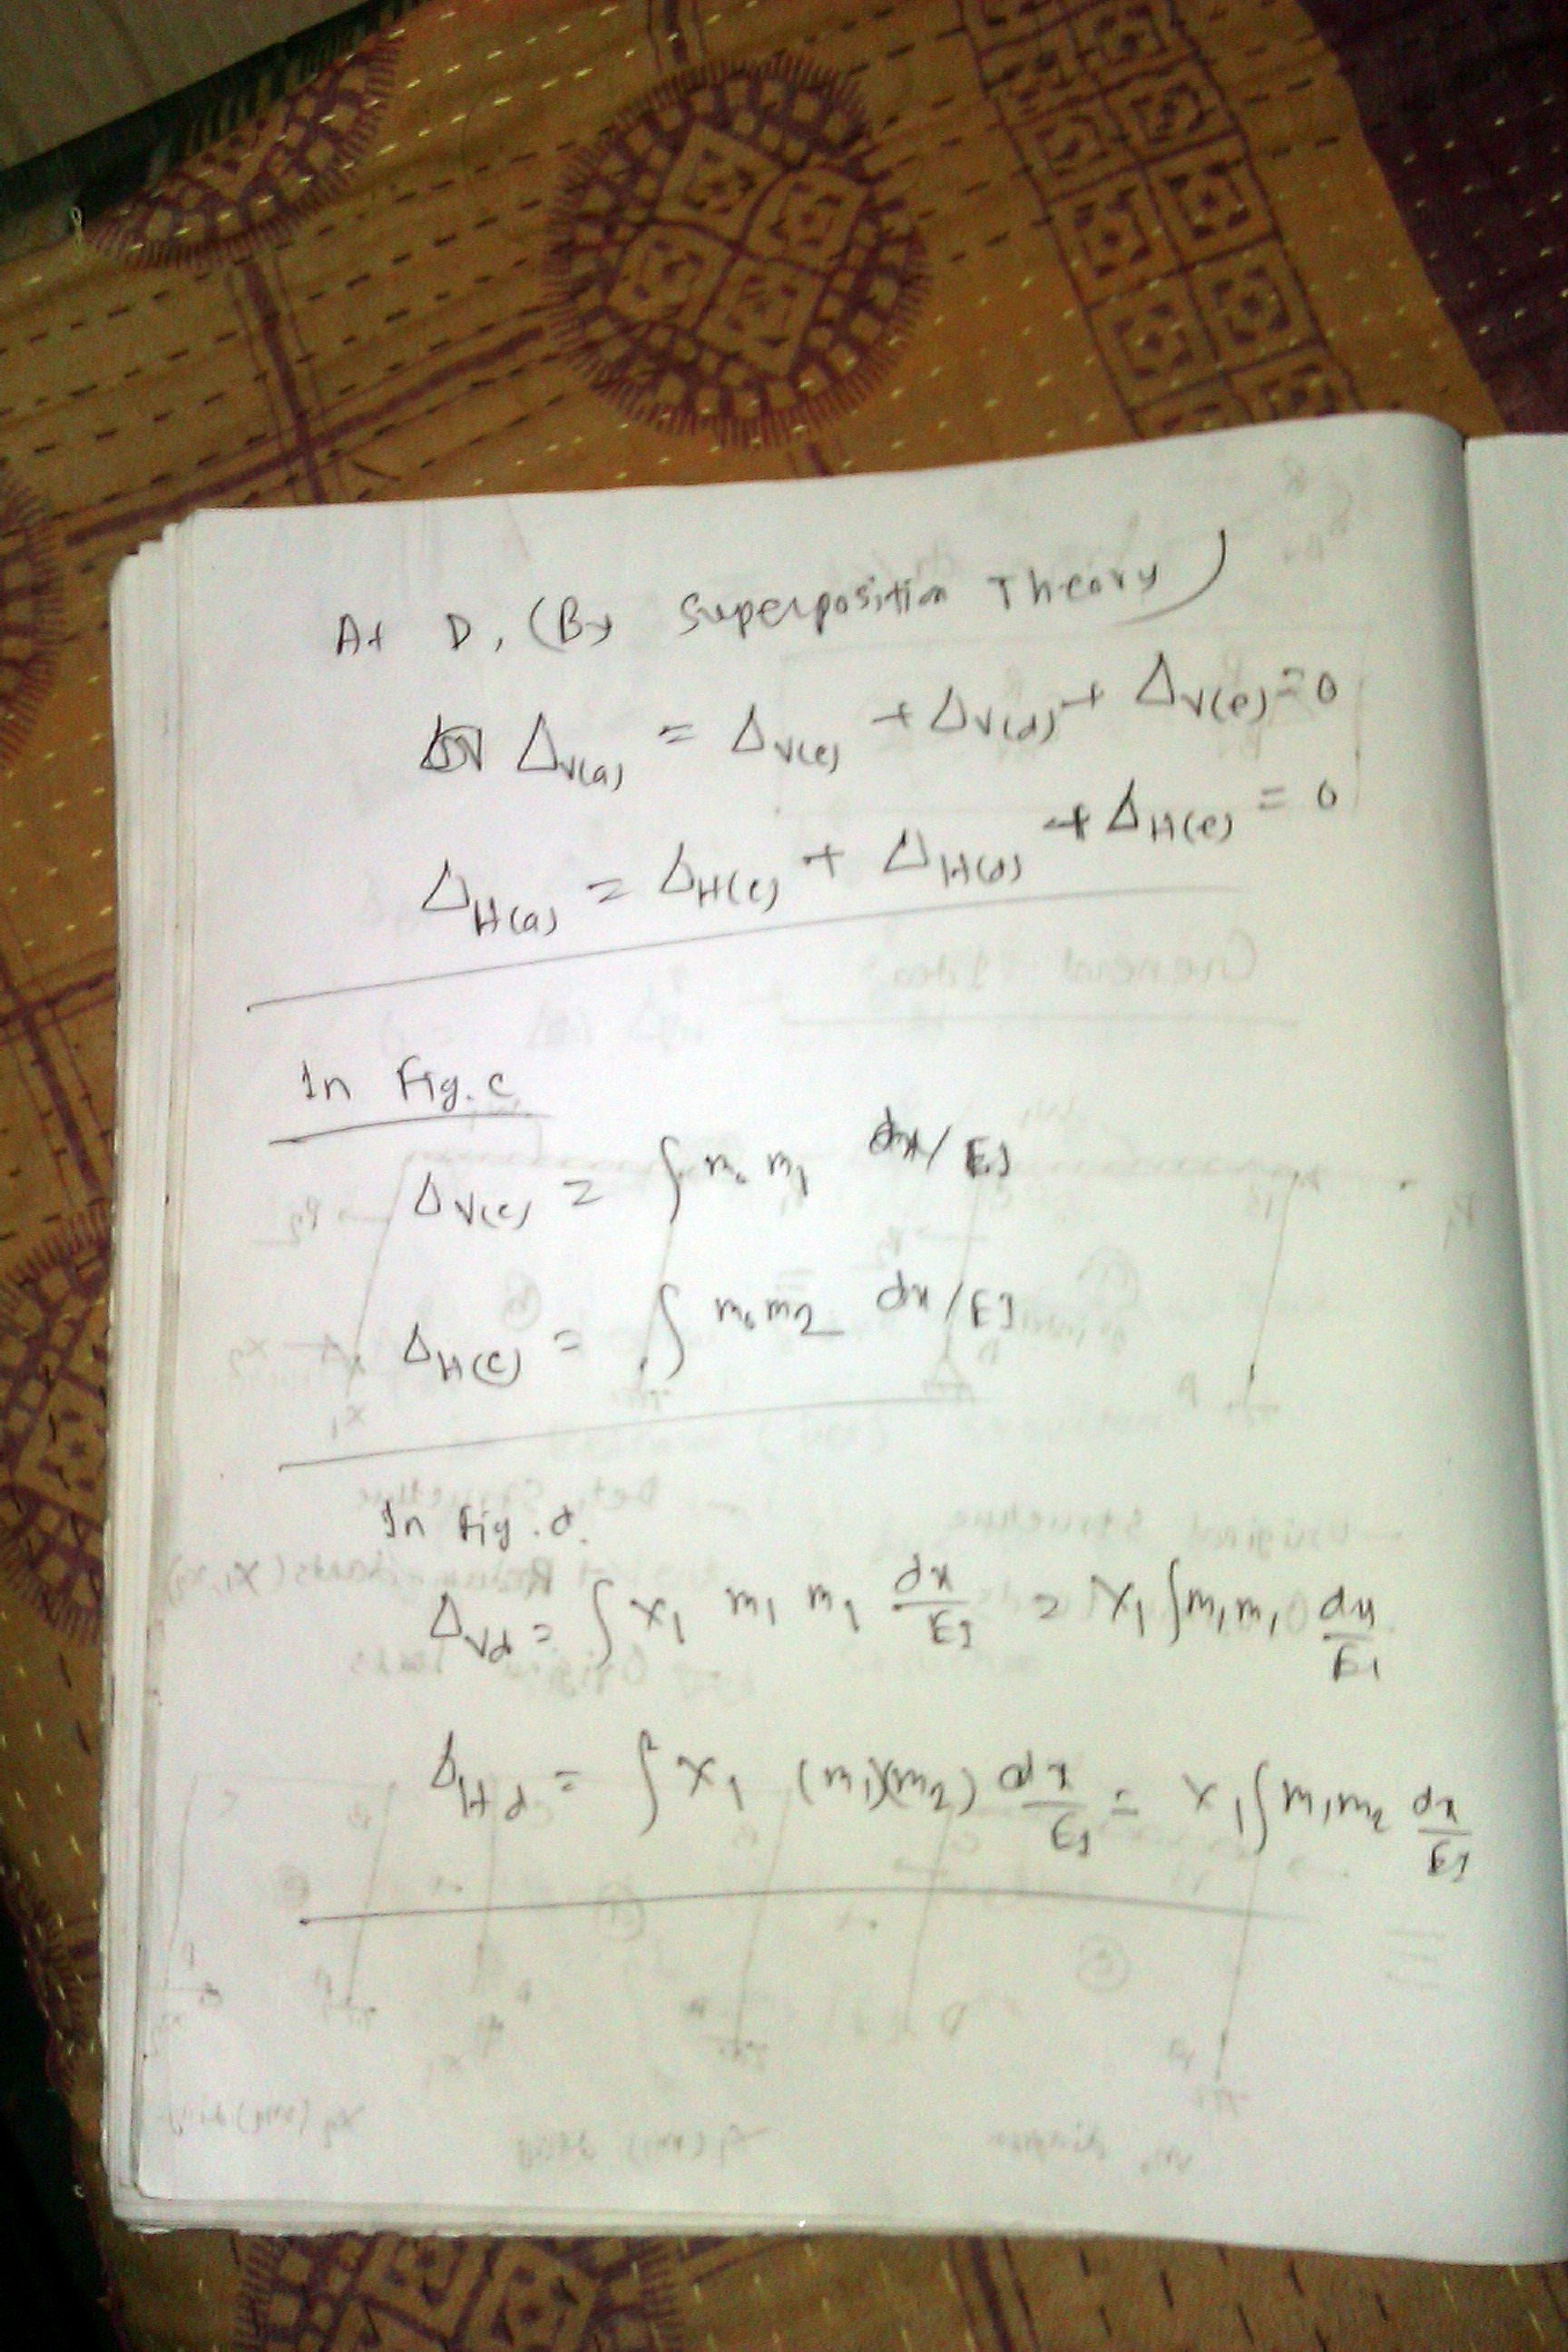 At D, (By Superposition Theory)
Δv(a) = Δv(c) + Δv(d) + Δv(e) = 0
ΔH(a) = ΔH(c) + ΔH(d) + ΔH(e) = 0
In Fig. c
Δv(c) = ∫ m₀ m₁ dx/EI
ΔH(c) = ∫ m₀ m₂ dx/EI
In Fig. d.
Δvd = ∫ x₁ m₁ m₁ dx/EI = x₁ ∫ m₁ m₁ dx/EI
ΔHd = ∫ x₁ (m₁)(m₂) dx/EI = x₁ ∫ m₁ m₂ dx/EI